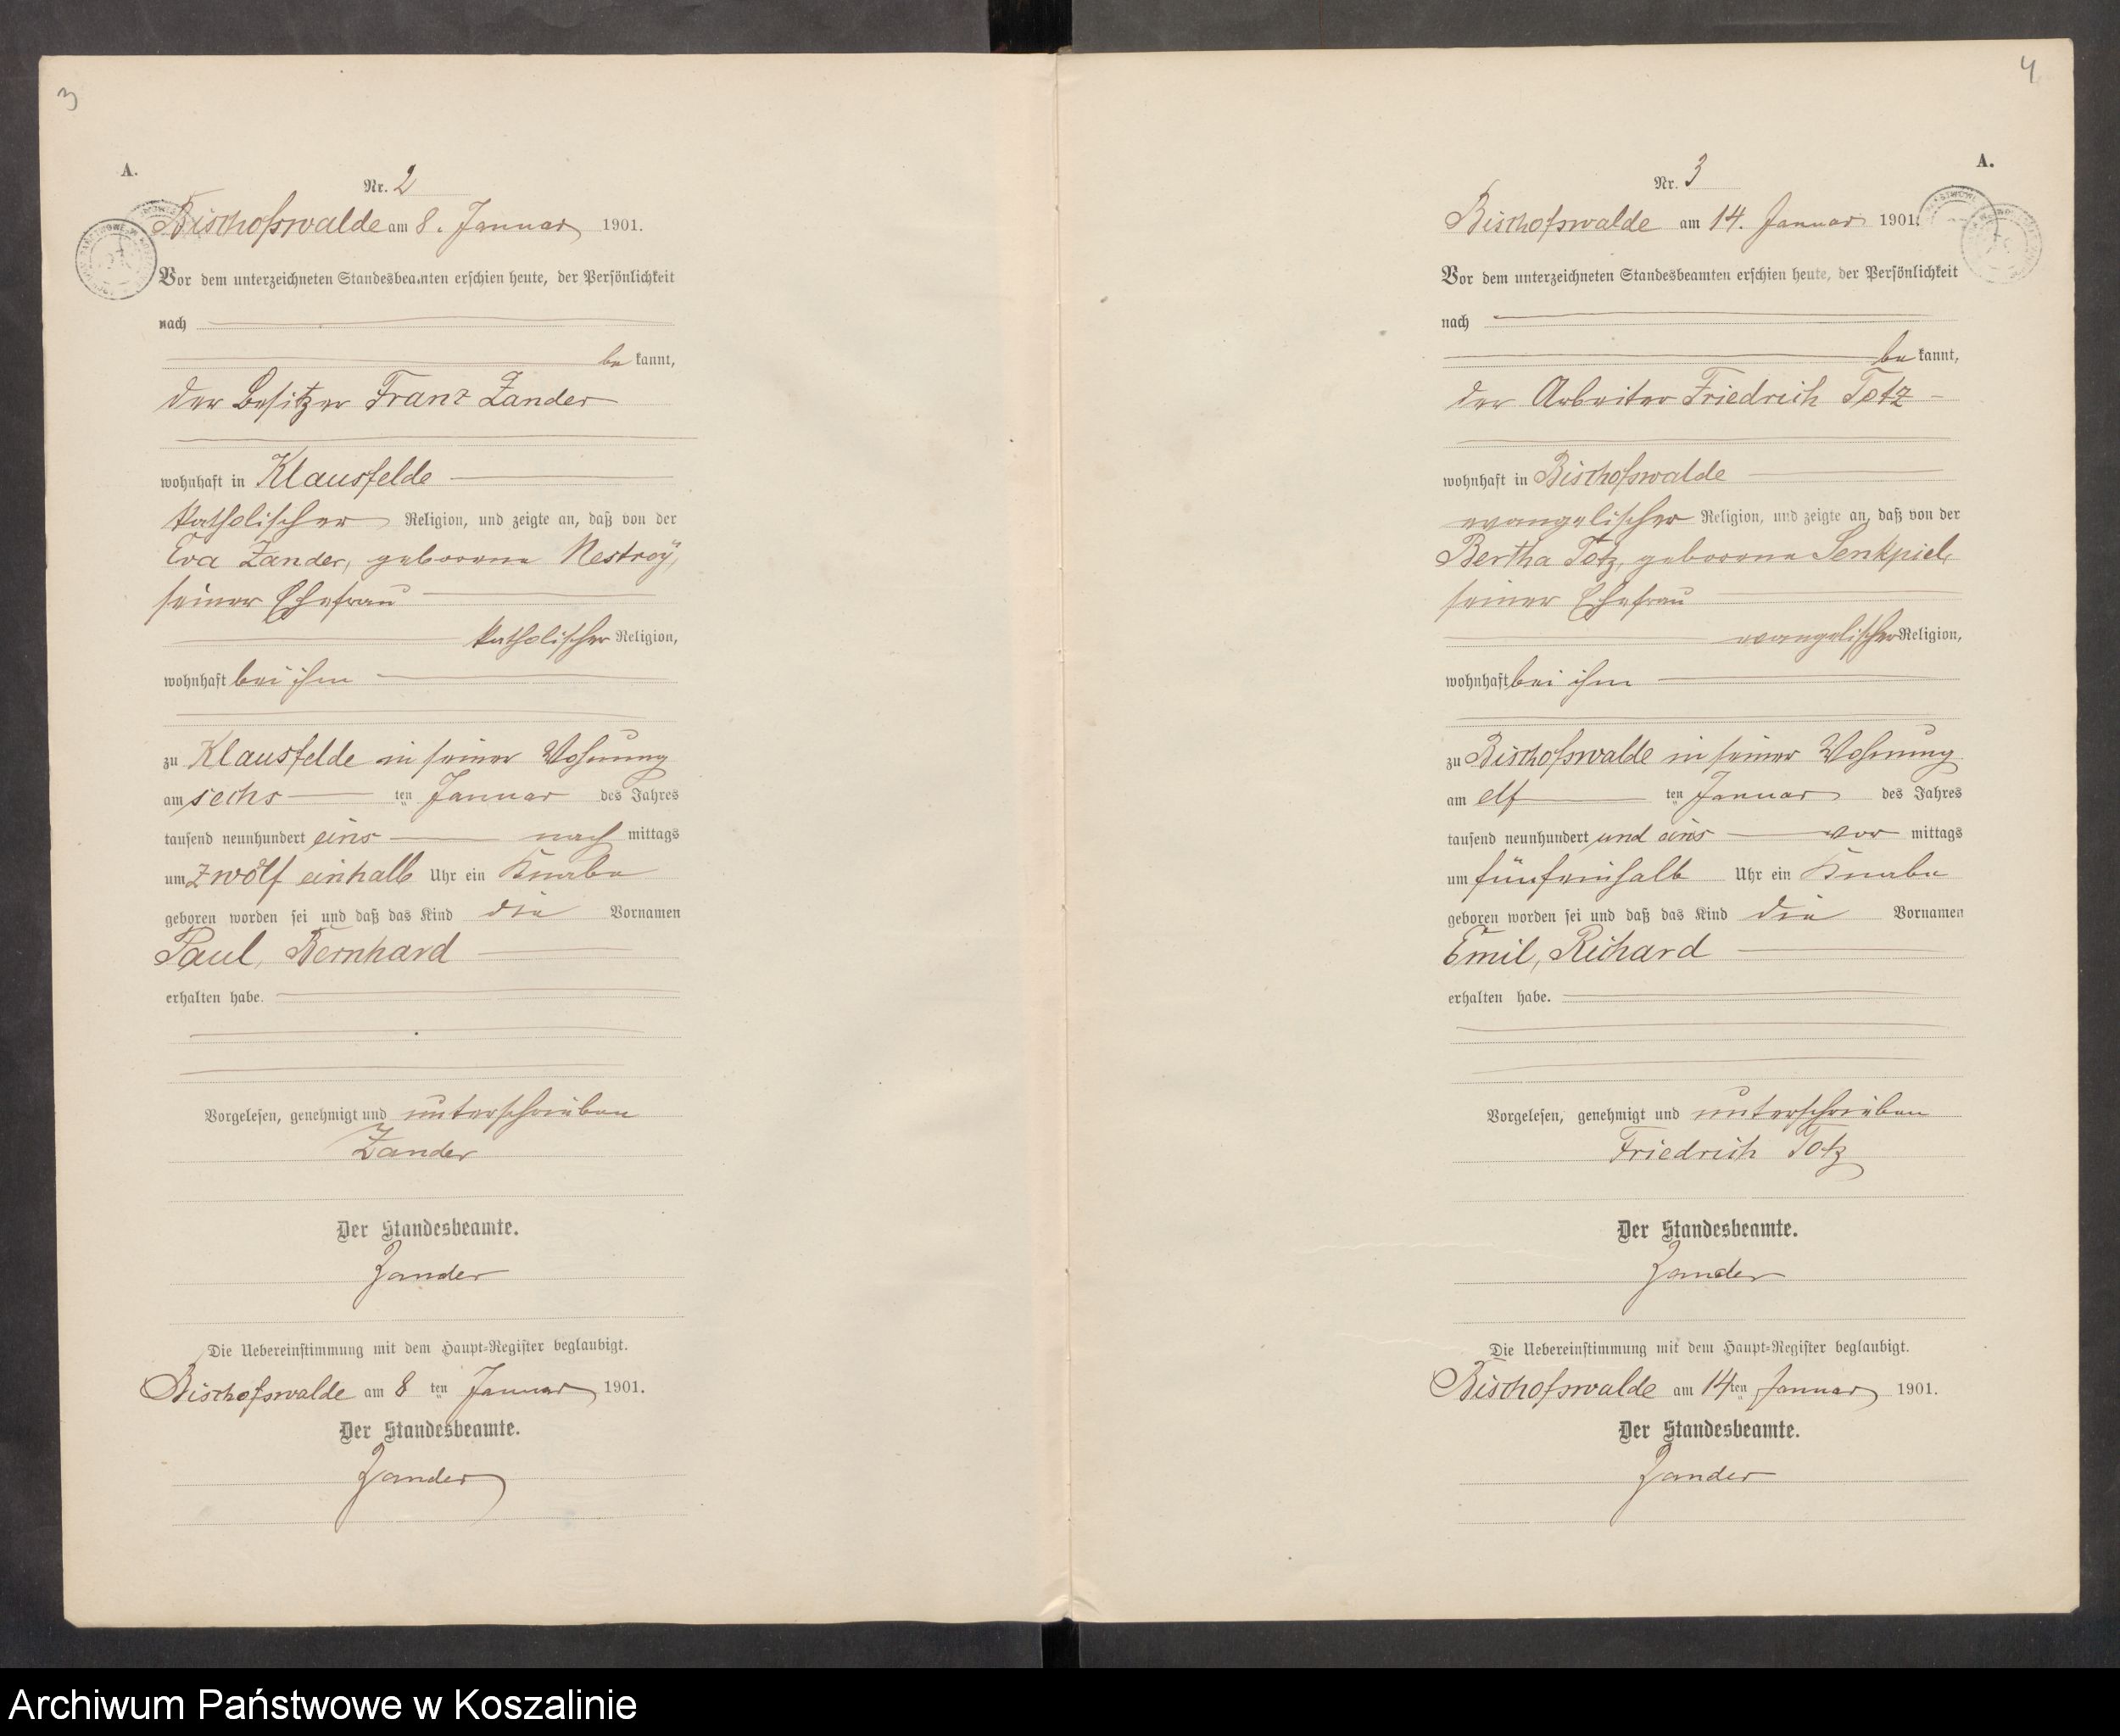 3
A.
Nr. 2
Bischofswalde am 8. Januar 1901.
Vor dem unterzeichneten Standesbeamten erschien heute, der Persönlichkeit
nach
be kannt,
der Besitzer Franz Zander
wohnhaft in Klausfelde
katholischer Religion, und zeigte an, daß von der
Eva Zander, geborene Nestroÿ,
seiner Ehefrau
katholischer Religion,
wohnhaft bei ihm
zu Klausfelde in seiner Wohnung
am sechs ten Januar des Jahres
tausend neunhundert eins nach mittags
um zwölf einhalb Uhr ein Knabe
geboren worden sei und daß das Kind die Vornamen
Paul, Bernhard
erhalten habe.
Vorgelesen, genehmigt und unterschrieben
Zander
Der Standesbeamte.
Zander
Die Uebereinstimmung mit dem Haupt-Register beglaubigt.
Bischofswalde am 8 ten Januar 1901.
Der Standesbeamte.
Zander
4
A.
Nr. 3
Bischofswalde am 14. Januar 1901.
Vor dem unterzeichneten Standesbeamten erschien heute, der Persönlichkeit
nach
be kannt,
der Arbeiter Friedrich Totz
wohnhaft in Bischofswalde
evangelischer Religion, und zeigte an, daß von der
Bertha Totz, geborene Senkpiel,
seiner Ehefrau
evangelischer Religion,
wohnhaft bei ihm
zu Bischofswalde in seiner Wohnung
am elf ten Januar des Jahres
tausend neunhundert und eins vor mittags
um fünfeinhalb Uhr ein Knabe
geboren worden sei und daß das Kind die Vornamen
Emil, Richard
erhalten habe.
Vorgelesen, genehmigt und unterschrieben
Friedrich Totz
Der Standesbeamte.
Zander
Die Uebereinstimmung mit dem Haupt-Register beglaubigt.
Bischofswalde am 14 ten Januar 1901.
Der Standesbeamte.
Zander
Archiwum Państwowe w Koszalinie